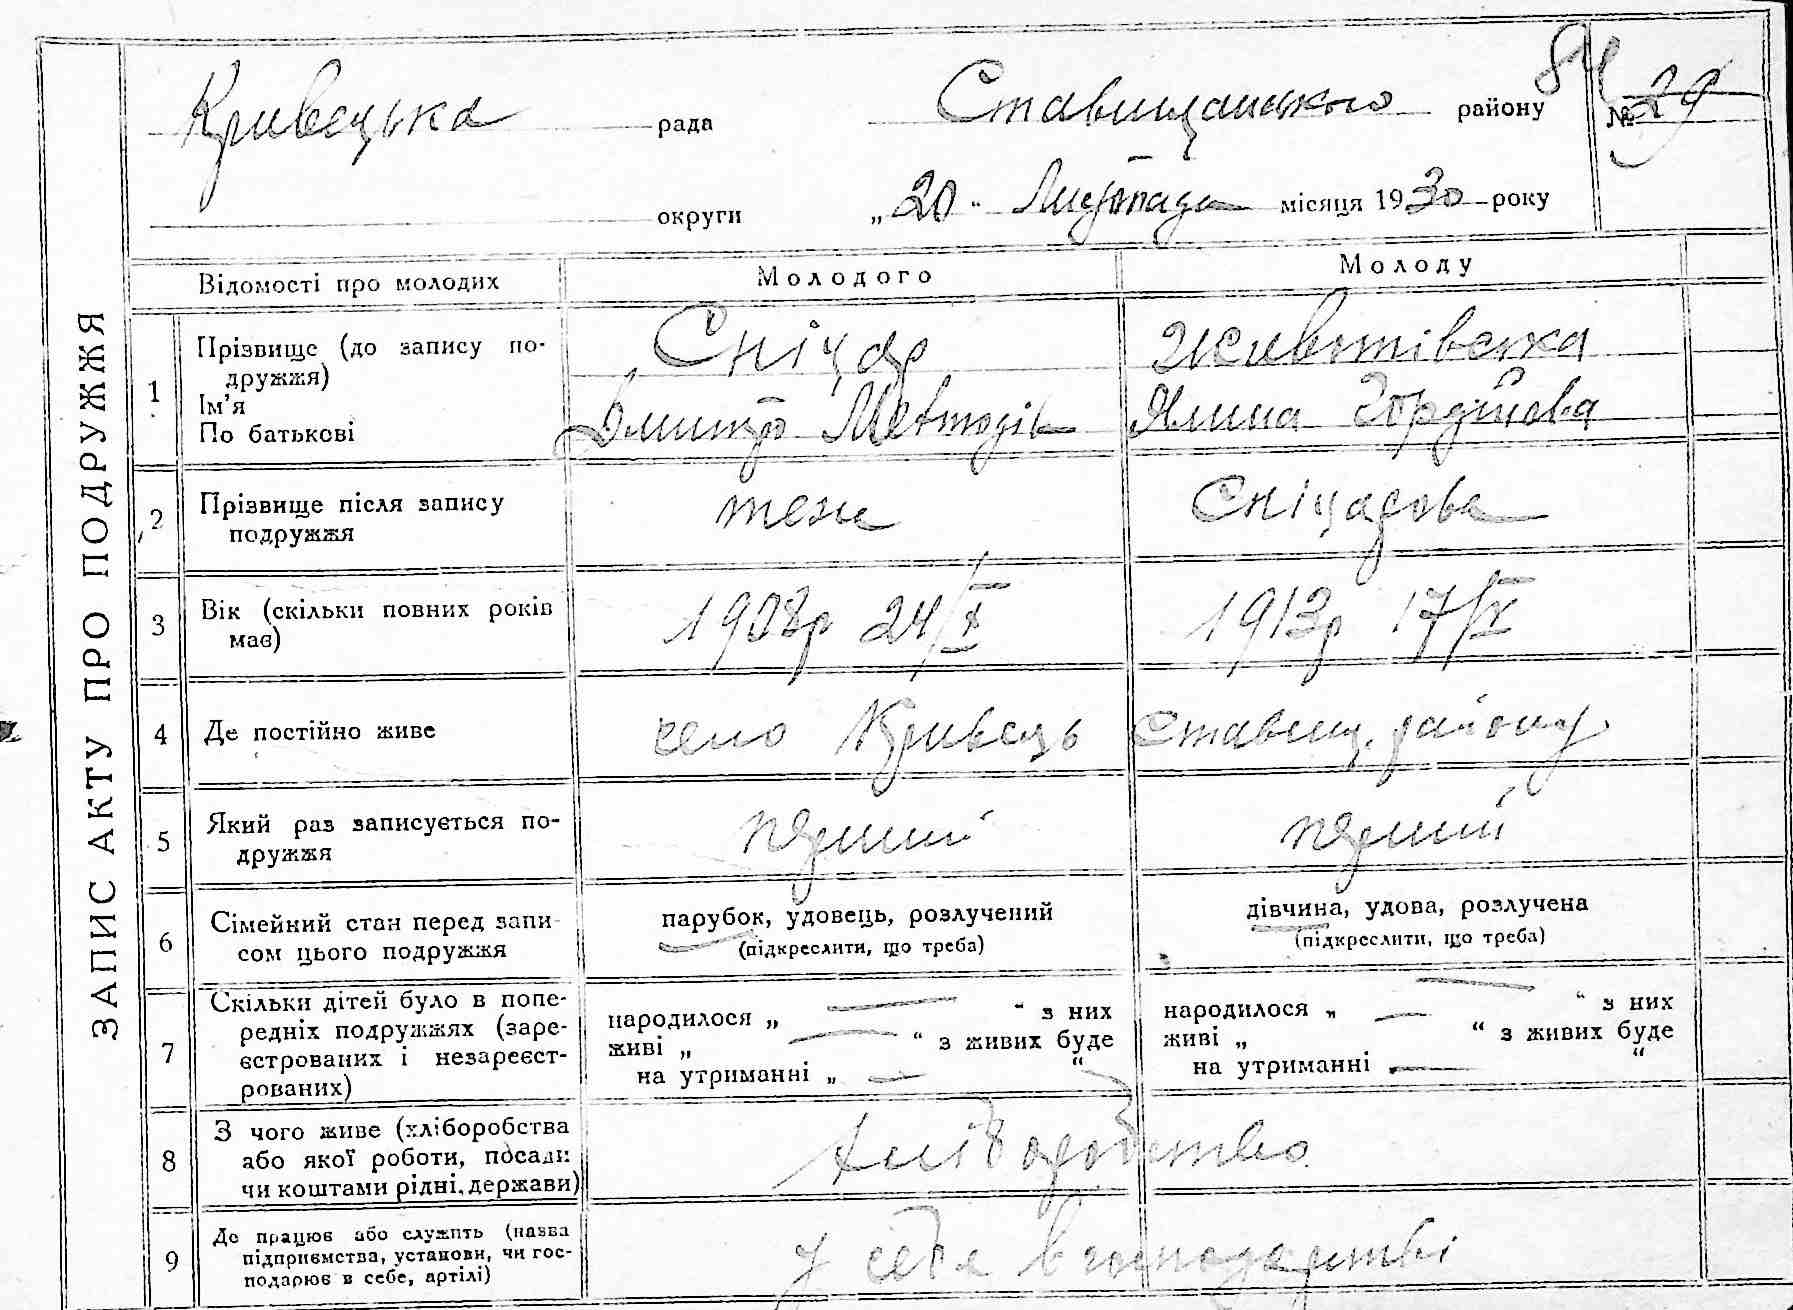 ЗАПИС АКТУ ПРО ПОДРУЖЖЯ
84
Кривецька рада Ставищанського району № 29
округи „20" Листопада місяця 1930 року
Відомості про молодих Молодого Молоду
1 Прізвище (до запису по- Сніцар Животівська
дружжя)
Ім'я Дмитро Методів Ялина Гордіїова
По батькові
2 Прізвище після запису теж Сніцарова
подружжя
3 Вік (скільки повних років 1908р 24/X 1913р 17/X
має)
4 Де постійно живе село Кривець Ставищ. району
5 Який раз записується по- перший перший
дружжя
6 Сімейний стан перед запи- парубок, удовець, розлучений дівчина, удова, розлучена
сом цього подружжя (підкреслити, що треба) (підкреслити, що треба)
7 Скільки дітей було в попе- народилося „ — “ з них народилося „ — “ з них
редніх подружжях (заре- живі „ — “ з живих буде живі „ — “ з живих буде
єстрованих і незареєст- на утриманні „ — “ на утриманні „ — “
рованих)
8 З чого живе (хліборобства Хліборобство
або якої роботи, посади
чи коштами рідні, держави)
9 Де працює або служить (назва у себе в господарстві
підприємства, установи, чи гос-
подарює в себе, артілі)